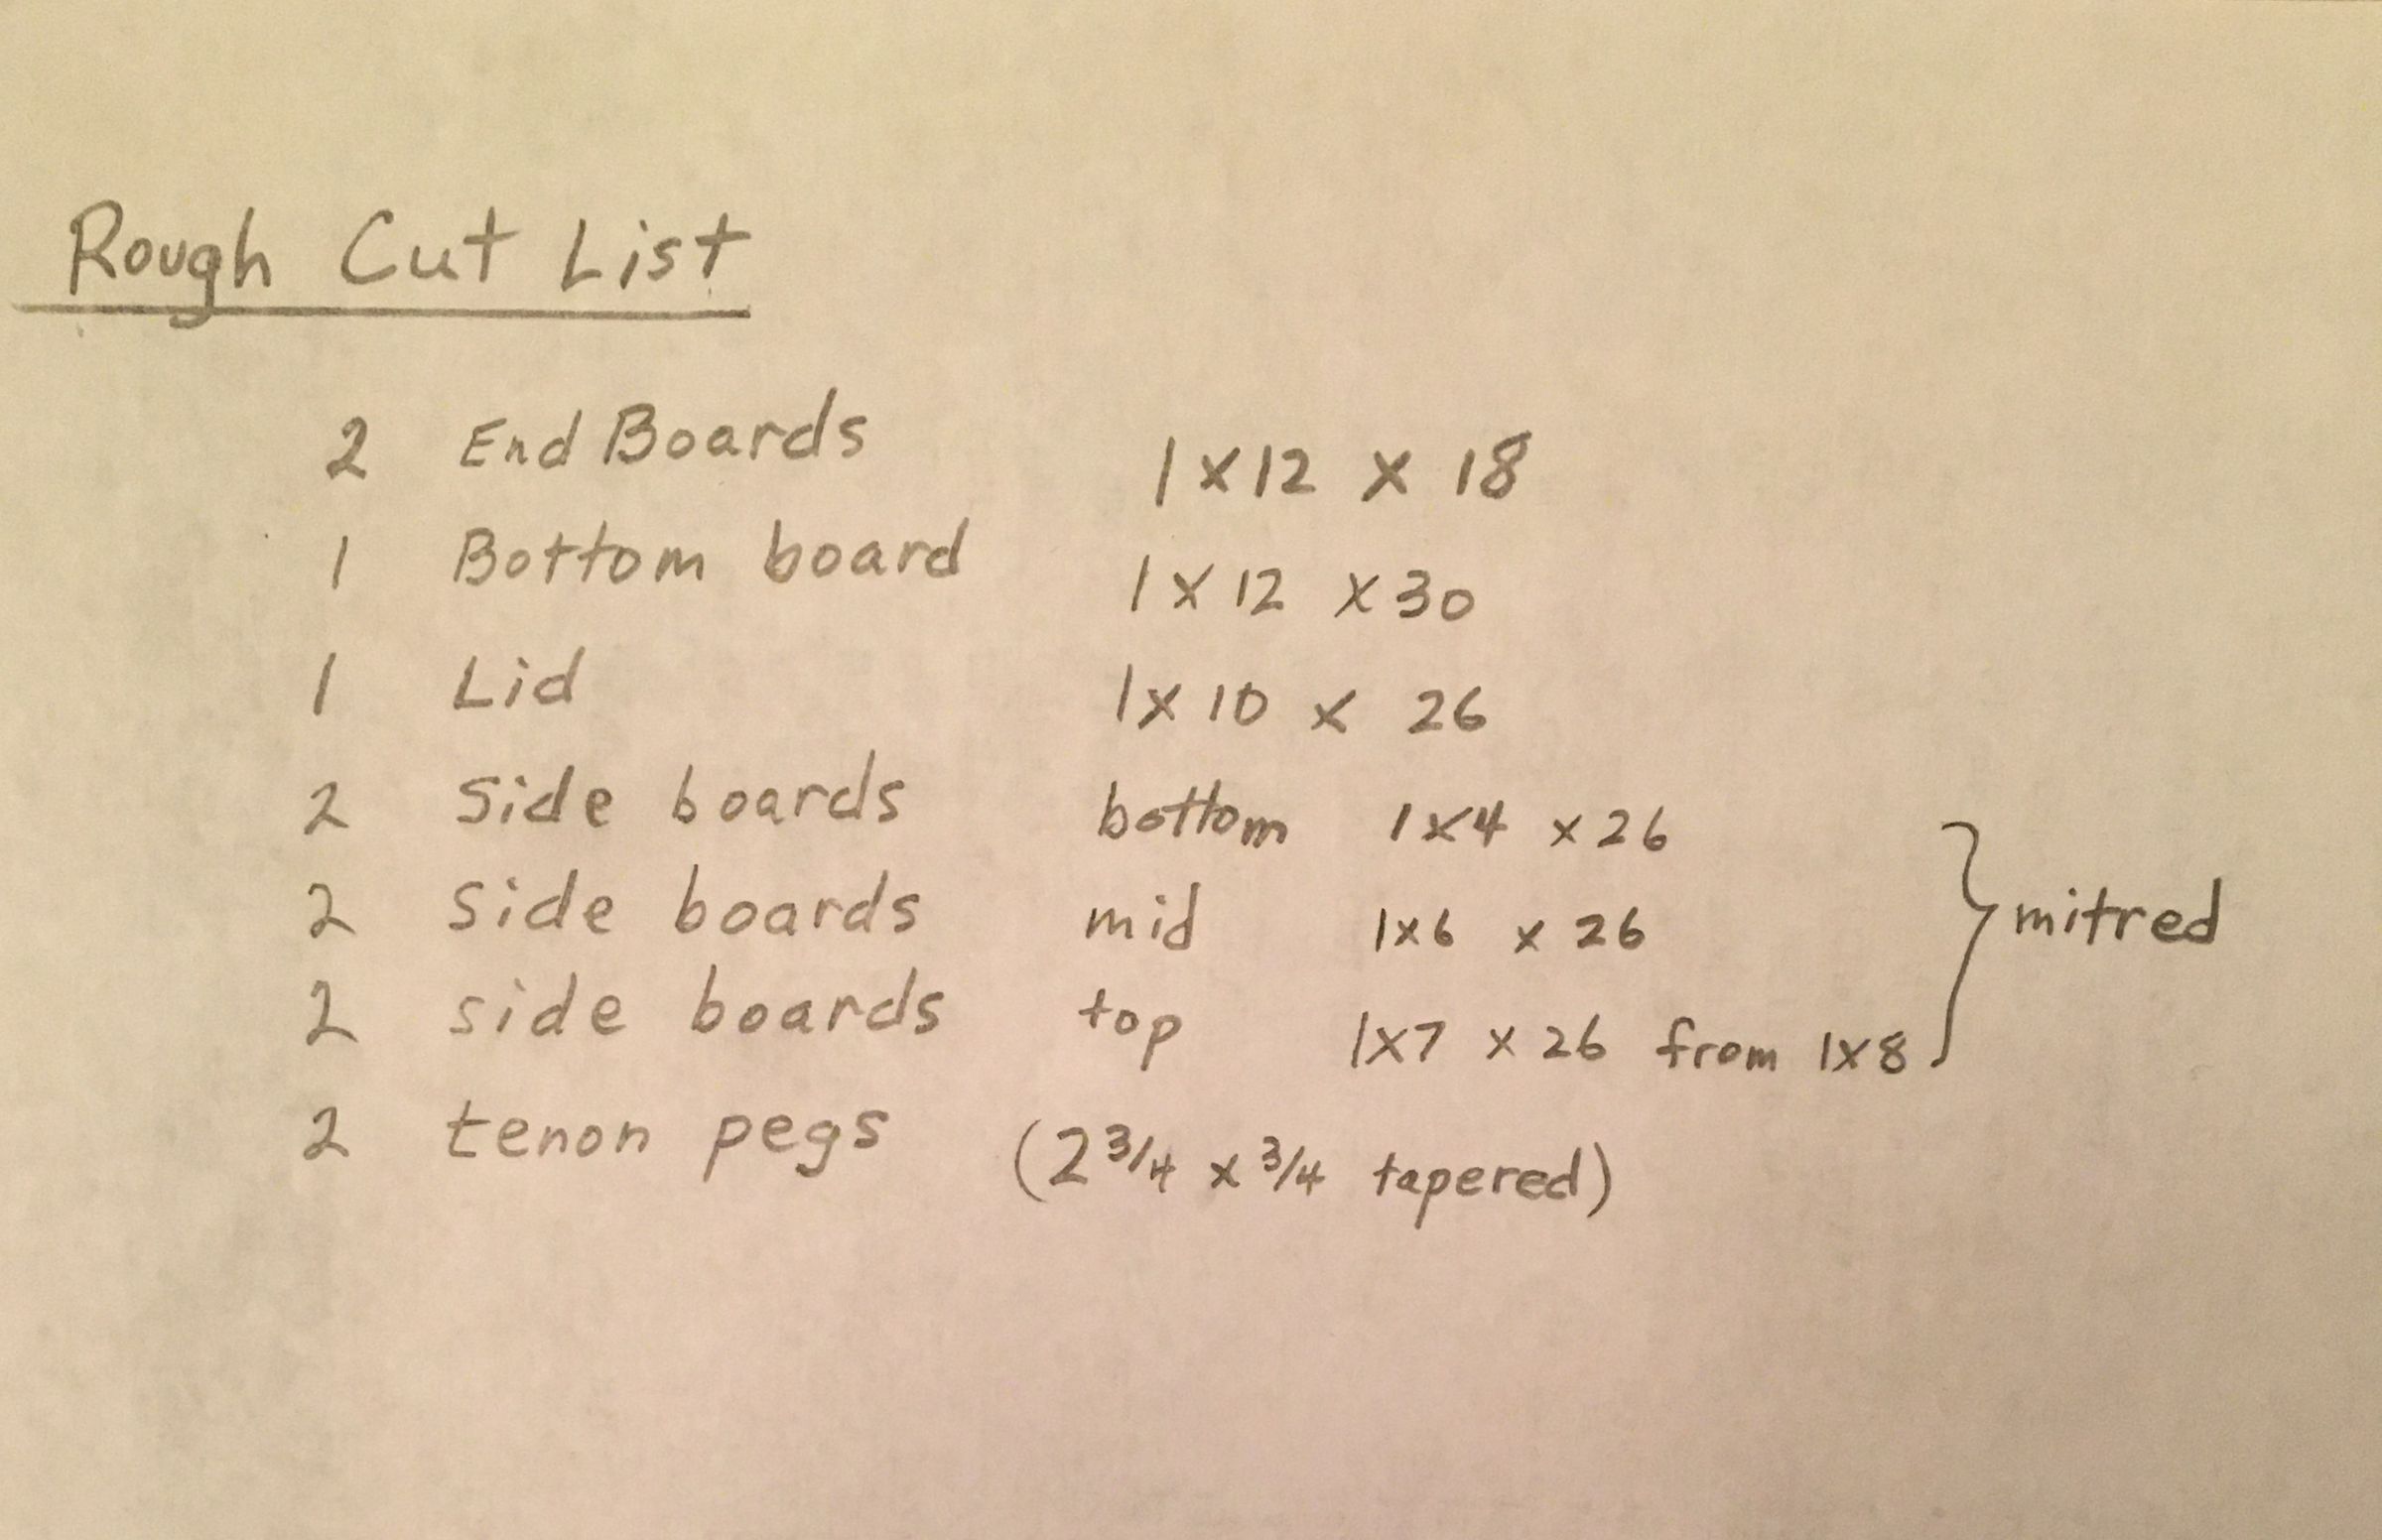 Rough Cut List
2 End Boards 1 x 12 x 18
1 Bottom board 1 x 12 x 30
1 Lid 1 x 10 x 26
2 Side boards bottom 1 x 4 x 26
2 Side boards mid 1 x 6 x 26 } mitred
2 side boards top 1 x 7 x 26 from 1 x 8
2 tenon pegs (2 3/4 x 3/4 tapered)